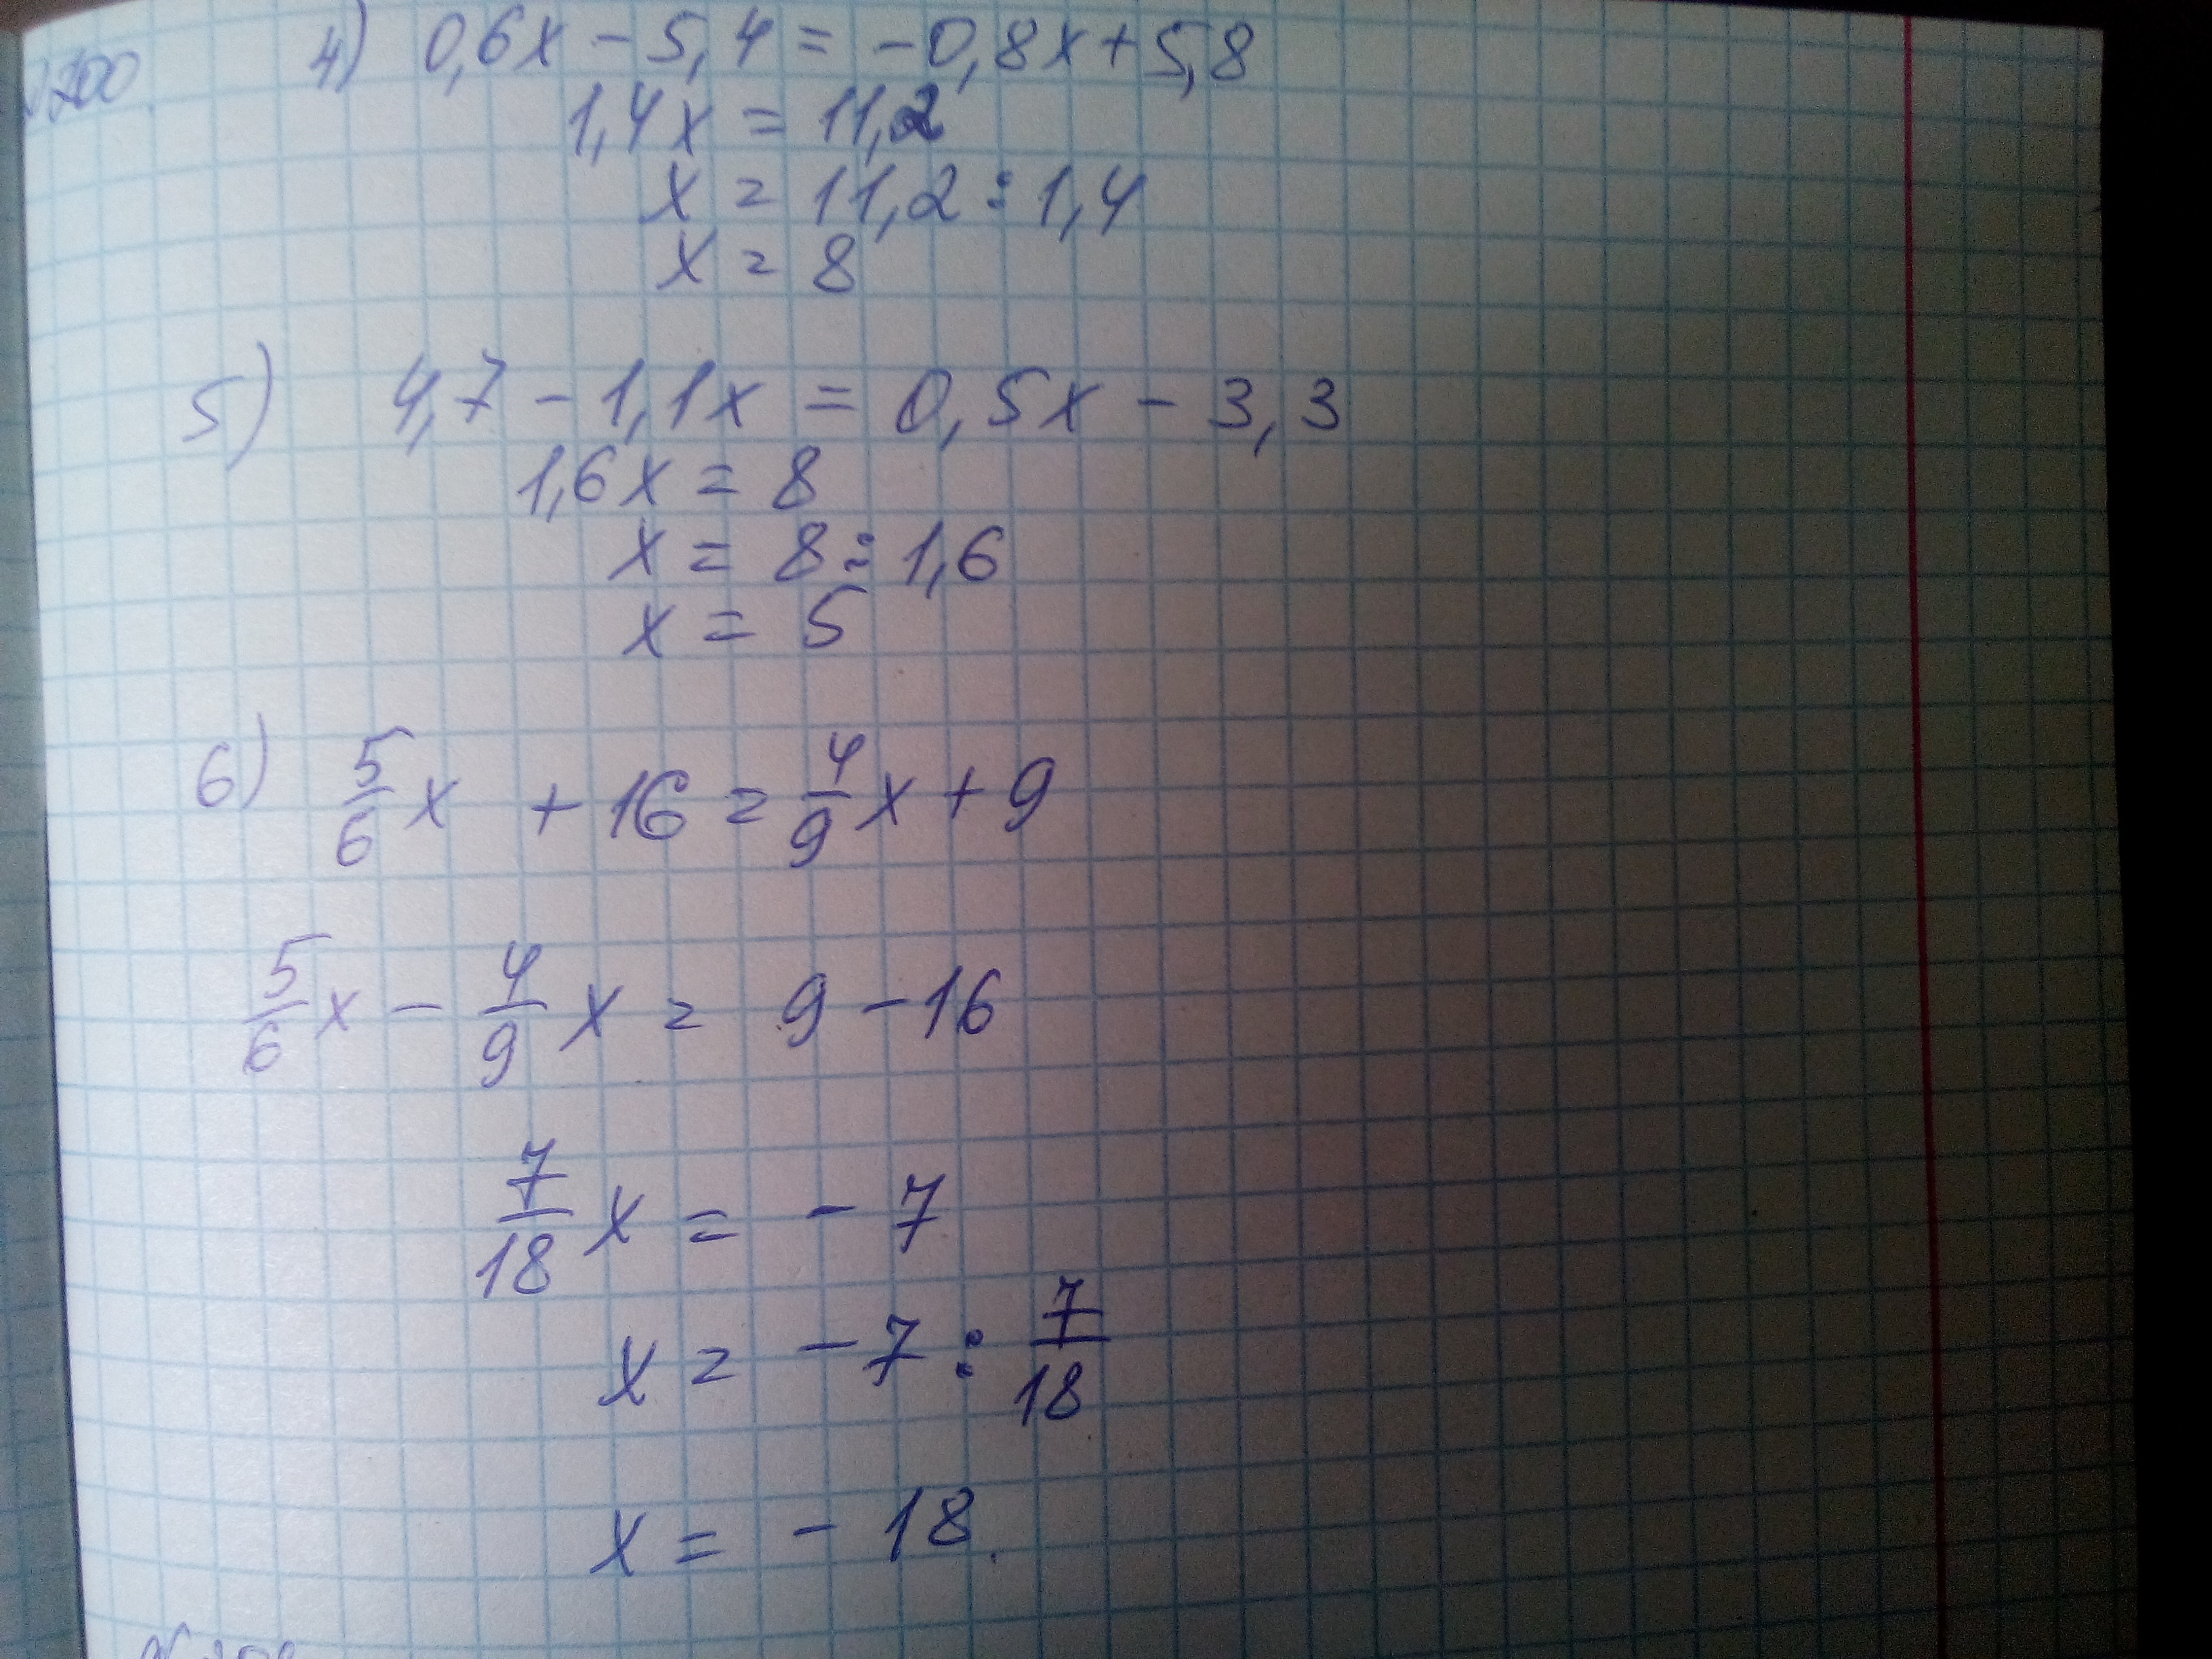 4) 0,6x - 5,4 = -0,8x + 5,8
1,4x = 11,2
x = 11,2 : 1,4
x = 8
5) 4,7 - 1,1x = 0,5x - 3,3
1,6x = 8
x = 8 : 1,6
x = 5
6) 5/6 x + 16 = 4/9 x + 9
5/6 x - 4/9 x = 9 - 16
7/18 x = - 7
x = - 7 : 7/18
x = - 18.